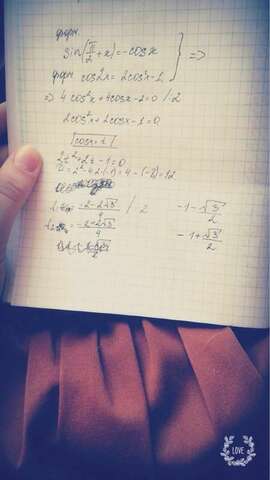 форм.
sin(π/2+x)=-cosx } =>
форм cos2x=2cos²x-1
=> 4cos²x+4cosx-2=0 /:2
2cos²x+2cosx-1=0
cosx=t
2t²+2t-1=0
D=2²-4·2·(-1)=4-(-8)=12
t₁= -2-2√3/4 /:2 -1-√3/2
t₂= -2+2√3/4 -1+√3/2
LOVE